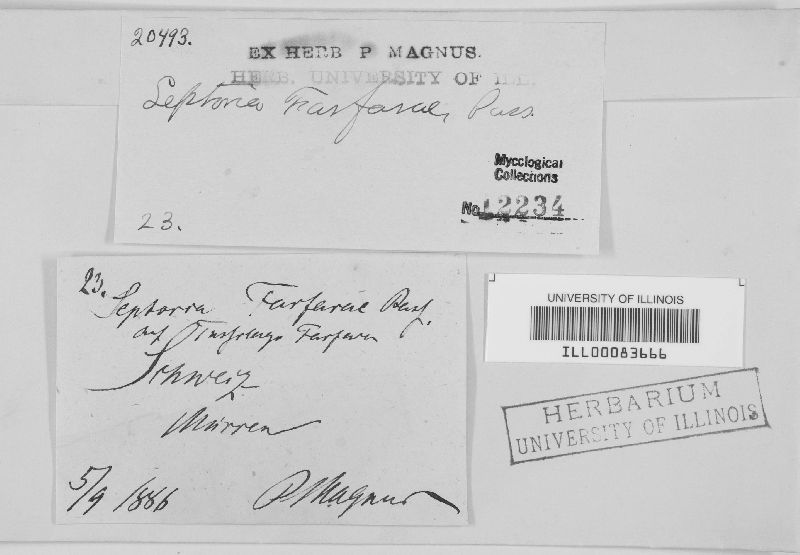 20493.
EX HERB P. MAGNUS.
HERB. UNIVERSITY OF ILL
Septoria Farfarae, Pass.
Mycological
Collections
No 12234
23.
23.
Septoria Farfarae Pass.
auf Tussilago Farfara
Schweiz
Mürren
5/9 1886 P. Magnus
UNIVERSITY OF ILLINOIS
ILL00083666
HERBARIUM
UNIVERSITY OF ILLINOIS